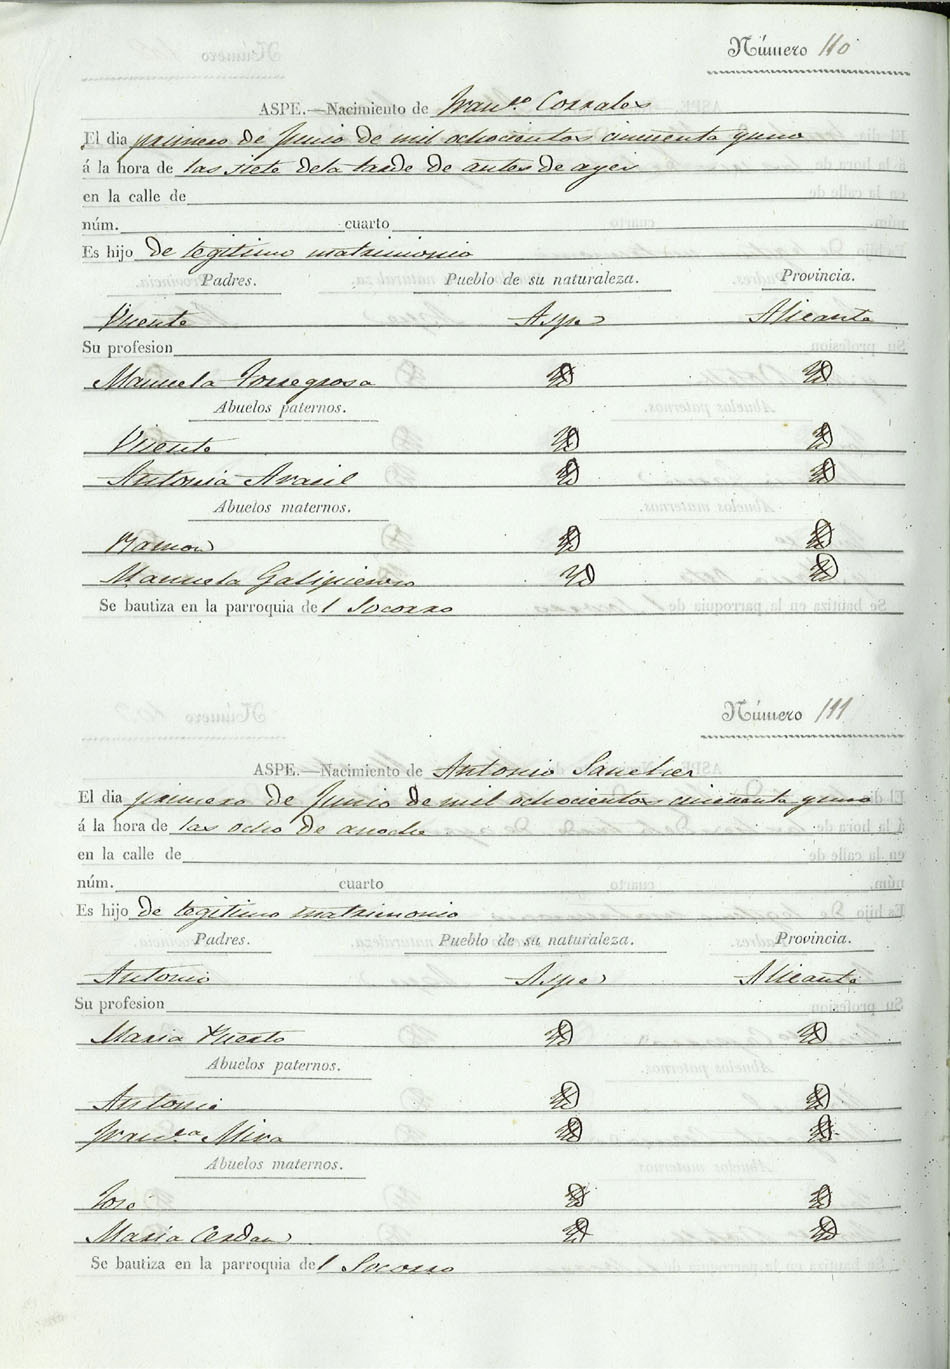 Número 110
ASPE.—Nacimiento de Fran.co Corrales
El dia primero de Junio de mil ochocientos cincuenta y uno
á la hora de las siete de la tarde de antes de ayer
en la calle de
núm. cuarto
Es hijo de legitimo matrimonio
Padres. Pueblo de su naturaleza. Provincia.
Vicente Aspe Alicante
Su profesion
Manuela Torregrosa Yd Yd
Abuelos paternos.
Vicente Yd Yd
Antonia Arasil Yd Yd
Abuelos maternos.
Ramon Yd Yd
Manuela Galipienso Yd Yd
Se bautiza en la parroquia del Socorro
Número 111
ASPE.—Nacimiento de Antonio Sanchez
El dia primero de Junio de mil ochocientos cincuenta y uno
á la hora de las ocho de anoche
en la calle de
núm. cuarto
Es hijo de legitimo matrimonio
Padres. Pueblo de su naturaleza. Provincia.
Antonio Aspe Alicante
Su profesion
Maria Puerto Yd Yd
Abuelos paternos.
Antonio Yd Yd
Fran.ca Mira Yd Yd
Abuelos maternos.
Jose Yd Yd
Maria Cerdan Yd Yd
Se bautiza en la parroquia del Socorro